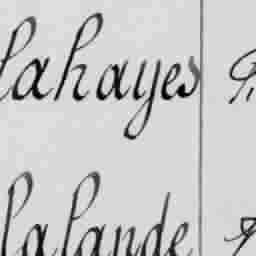 Lahayes
Lalande